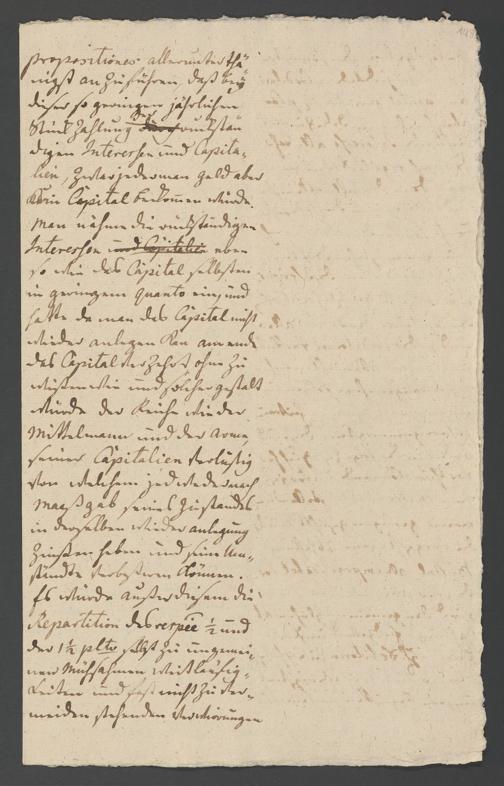 propositiones allerunterthä-
nigst anzuführen, daß bey
dieser so geringen jährlichen
Stück Zahlung der rückstän
digen Interessen und Capita-
lien, zwar jederman geld aber
Kein Capital bekommen würde.
man nähme die rückständigen
Interessen und Capitalien eben
so wie das Capital selbsten
in geringem quanto ein, und
hätte da man das Capital nicht
wieder anlegen kan am ende
das Capital verzehrt ohne zu
wißen wie und solcher gestalt
würde der Reiche wie der
Mittelmann und der arme
seiner Capitalien verlustig
von welchem jedweder nach
maasgab seines Zustandes
in derselben wieder anlegung
Zinßen heben und seine Um-
stände verbeßern können.
Es würde außer diesem die
Repartition des respèe ½ und
der 1½ plto selbst zu ungemei-
nen Mühsahmen weitläufig-
keiten und fast nicht zu ver-
meiden stehenden Verwirrungen